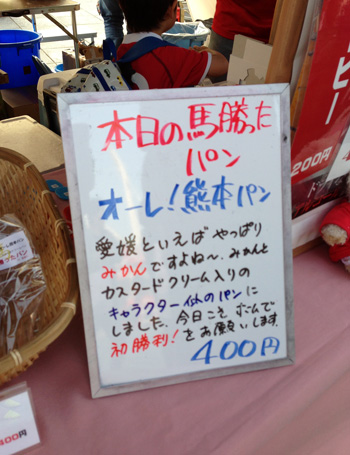 本日の馬勝った
パン
オーレ!熊本パン
愛媛といえばやっぱり
みかんですよね〜、みかんと
カスタードクリーム入りの
キャラクター似のパンに
しました。今日こそホームで
初勝利!をお願いします。
400円
200円
400円